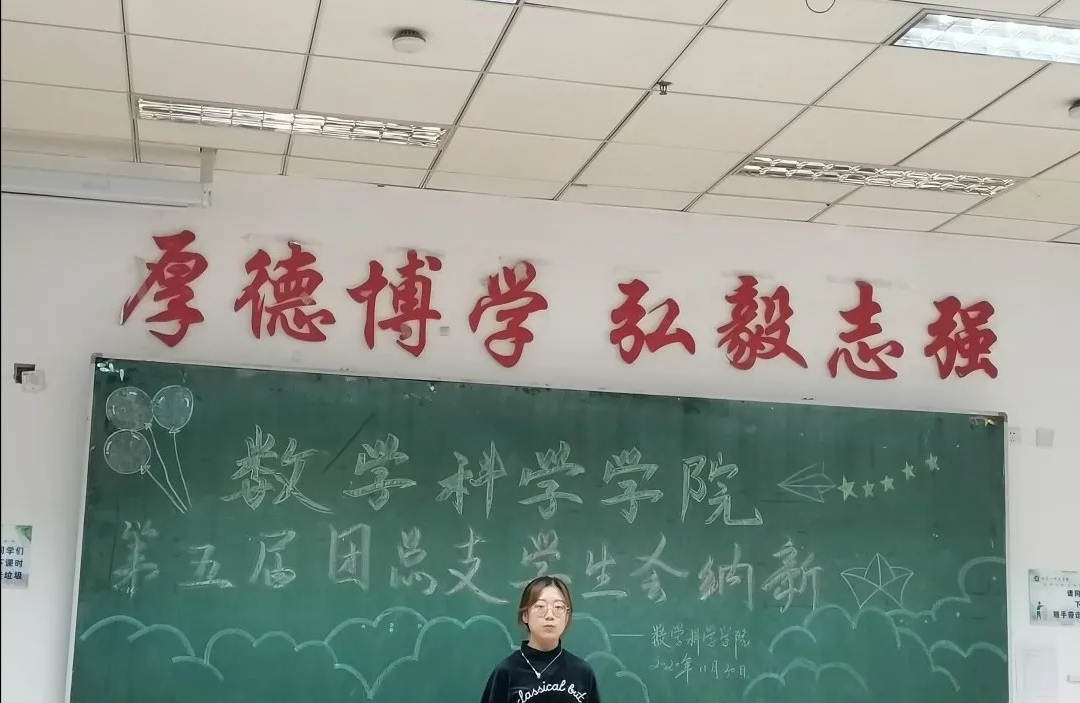 厚德博学 弘毅志强
数学科学学院
第五届团总支学生会纳新
——数学科学学院
2020年11月30日
同学们
下课时
垃圾
请同
下
随手带走
classical but